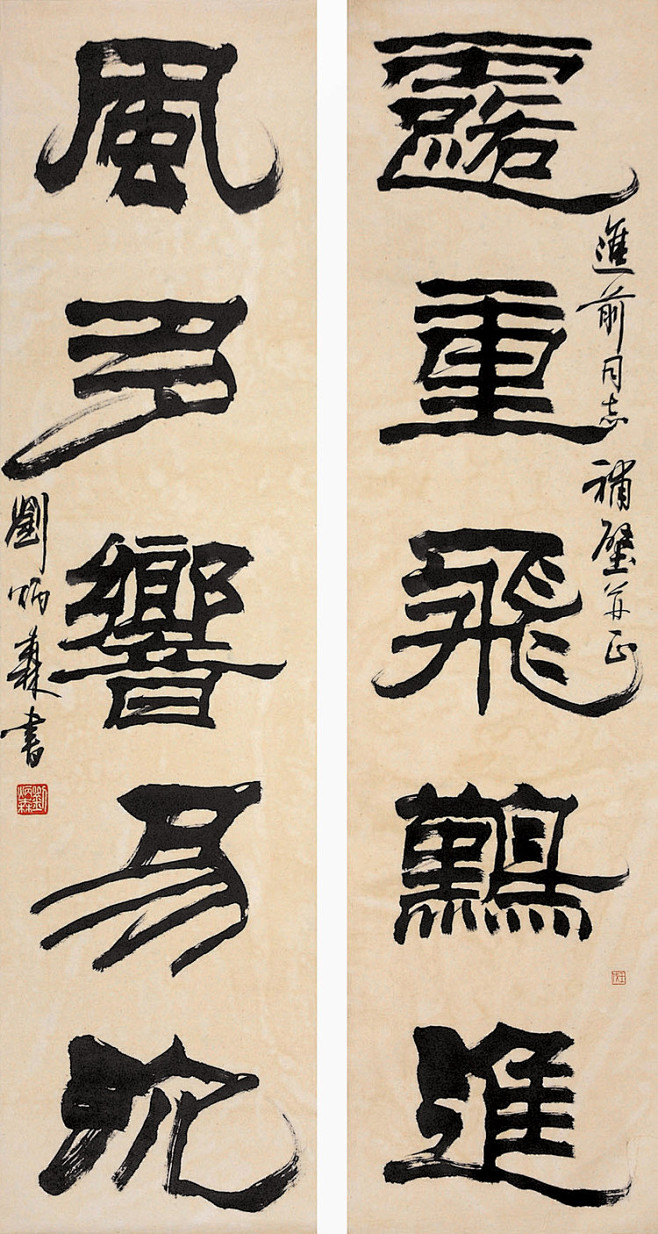 露重飛難進
進前同志補壁并正
風多響易沉
劉炳森書
劉炳森